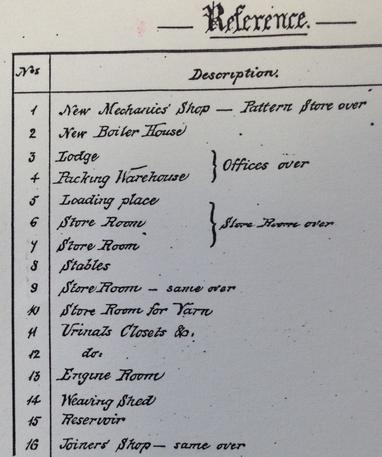 Reference.
Nos Description.
1 New Mechanics' Shop — Pattern Store over
2 New Boiler House
3 Lodge
4 Packing Warehouse
} Offices over
5 Loading place
6 Store Room
7 Store Room
} Store Room over
8 Stables
9 Store Room — same over
10 Store Room for Yarn
11 Urinals Closets &c.
12 do:
13 Engine Room
14 Weaving Shed
15 Reservoir
16 Joiners' Shop — same over